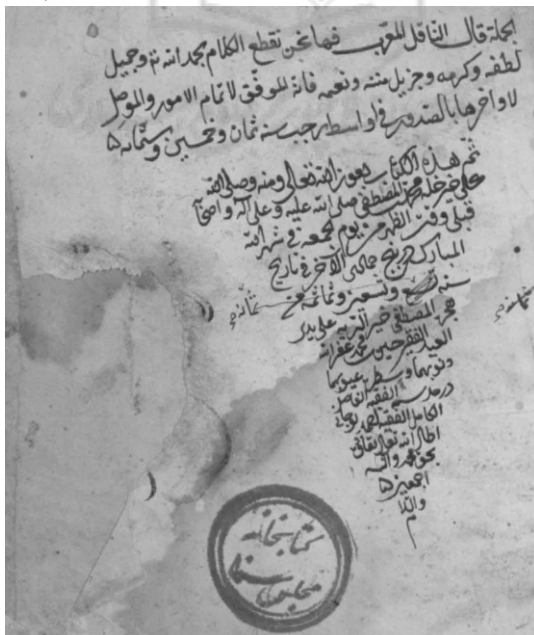 الجملة قال الناقل المعرب فها نحن نقطع الكلام بحمد الله تعالى وجميل
لطفه وكرمه وجزيل مننه ونعمه فانه الموفق لاتمام الامور والموصل
لاواخرها بالصدور في اواسط رجب سنه ثمان وخمسين وستمائه ٥
تم هذه الكتاب بعون الله تعالى ومنه وصلى الله
على خير خلقه محمد المصطفى صلى الله عليه وعلى آله واصحابه
قبل وقت الظهر من يوم الجمعة في شهر الله
المبارك جمادى الآخر في تاريخ
سنه وتسعين وثمانمائة
هجرة المصطفى خير البرية على يد
العبد الفقير حسين بن محمد غفر الله
ذنوبهما وستر عيوبهما
الفقيه الفاضل
الكامل الفقيه
اطال الله تعالى بقائه
بحق محمد وآله
اجمعين ٥
والسلام
كتابخانه
مجلس سنا